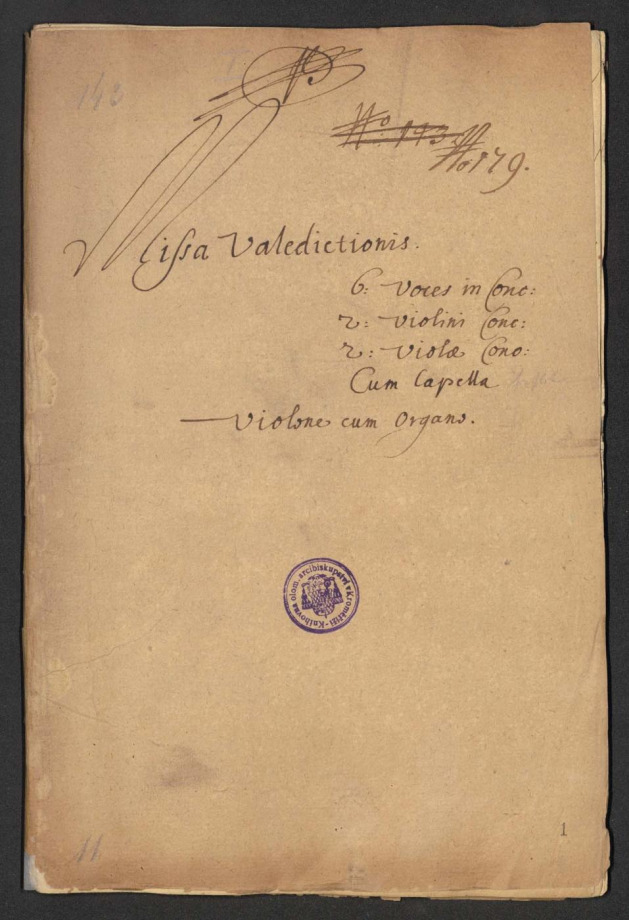 143
No. 143
No 179.
Missa Valedictionis.
6: Voces in Conc:
2: Violini Conc:
2: Violæ Conc:
Cum Capella
Violone cum Organo.
Knihovna olom. arcibiskupství v Kroměříži
1
11